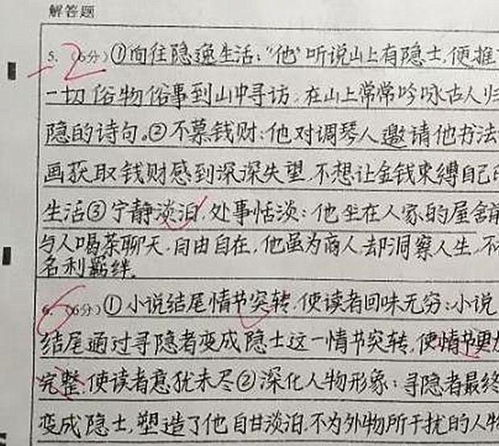 解答题
5. (6分) ①向往隐逸生活:"他"听说山上有隐士,便推
-2
一切俗物俗事到山中寻访,在山上常常吟咏古人归
隐的诗句。②不慕钱财:他对调琴人邀请他书法
画获取钱财感到深深失望,不想让金钱束缚自己的
生活③宁静淡泊,处事恬淡:他坐在人家的屋舍前
与人喝茶聊天,自由自在,他虽为商人,却洞察人生,不
名利羁绊.
6. (6分) ①小说结尾情节突转,使读者回味无穷:小说
结尾通过寻隐者变成隐士这一情节突转,使情节更加
完整,使读者意犹未尽②深化人物形象:寻隐者最终
变成隐士,塑造了他自甘淡泊,不为外物所干扰的人物